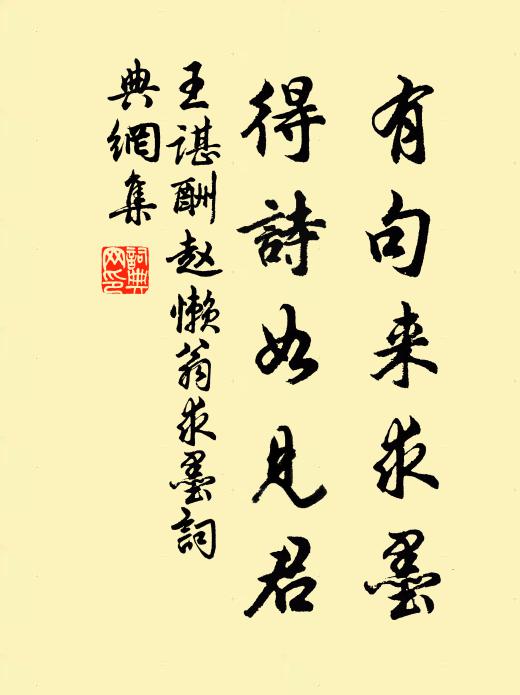 有句来求墨
得詩如見君
王諶酬赵懶翁求墨詞
典網集
詞典网印